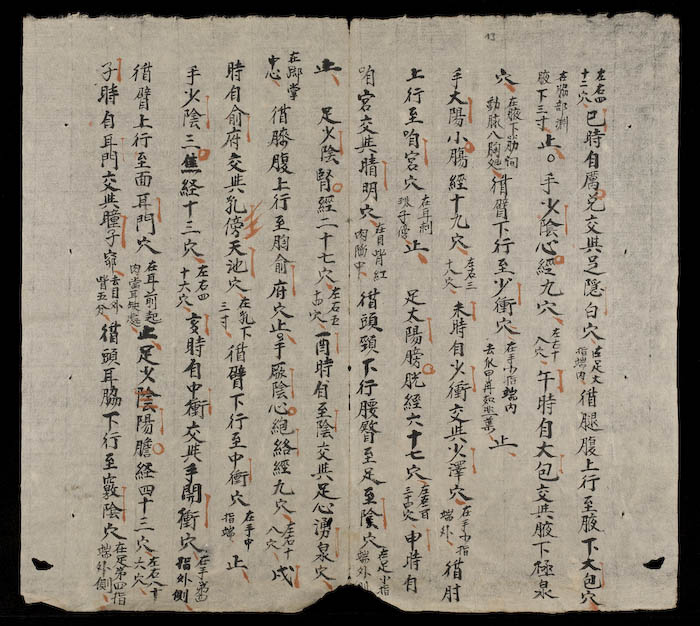 左右四十二穴 巳時自厲兌交與足隱白穴 在足大指端内 循腿腹上行至腋下大包穴
在脇部淵腋下三寸 止。手少陰心經九穴 左右十八穴 午時自大包交與腋下極泉
穴 在腋下筋間動脉入胸 循臂下行至少衝穴 在手小指端内去爪甲角如韭葉 止
手太陽小腸經十九穴 左右三十八穴 未時自少衝交與少澤穴 在手小指端外 循肘
上行至咱宮穴 在耳前珠子傍 止 足太陽膀胱經六十七穴 左右一百三十四穴 申時自
咱宮交與睛明穴 在目眥紅肉陷中 循頭頸下行腰臀至足至陰穴 在足小指端外側
止 足少陰腎經二十七穴 左右五十四穴 酉時自至陰交與足心湧泉穴
在脚掌中心 循膝腹上行至胸俞府穴止。手厥陰心絕絡經九穴 左右十八穴 戌
時自俞府交與乳傍天池穴 在乳下三寸 循臂下行至中衝穴 在手中指端 止
手少陰三焦経十三穴 左右四十六穴 亥時自中衝交與手開衝穴 在手第四指外側
循臂上行至面耳門穴 在耳前起肉當耳缺處 止 足少陰陽膽経四十三穴 左右八十六穴
子時自耳門交與瞳子窌 去目外眥五分 循頭耳脇下行至竅陰穴 在足第四指端外側